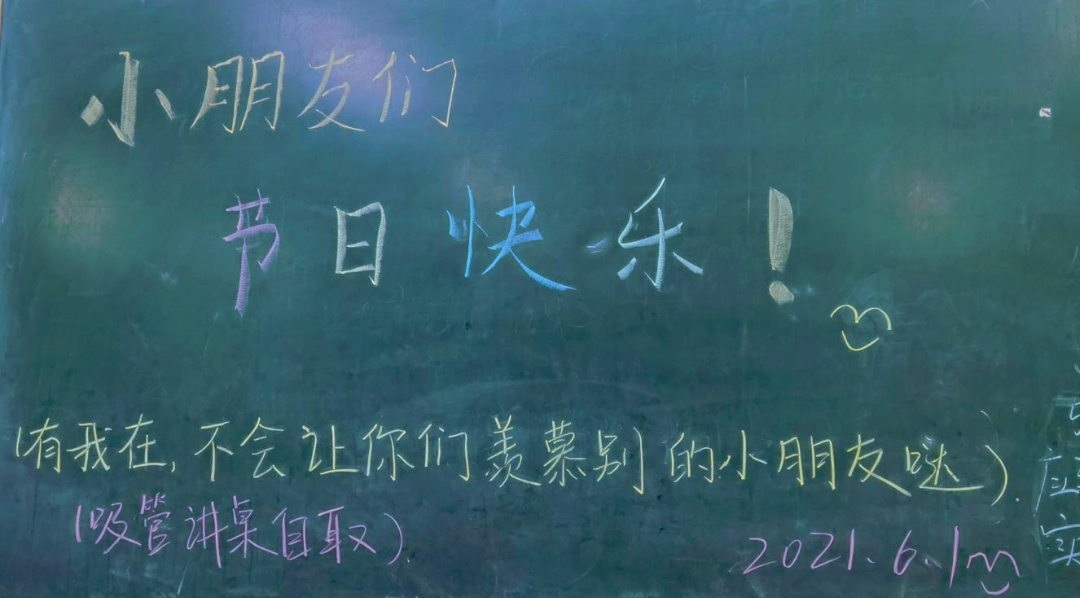 小朋友们
节日快乐！
(有我在,不会让你们羡慕别的小朋友哒).
(吸管讲桌自取).
2021.6.1
应
实